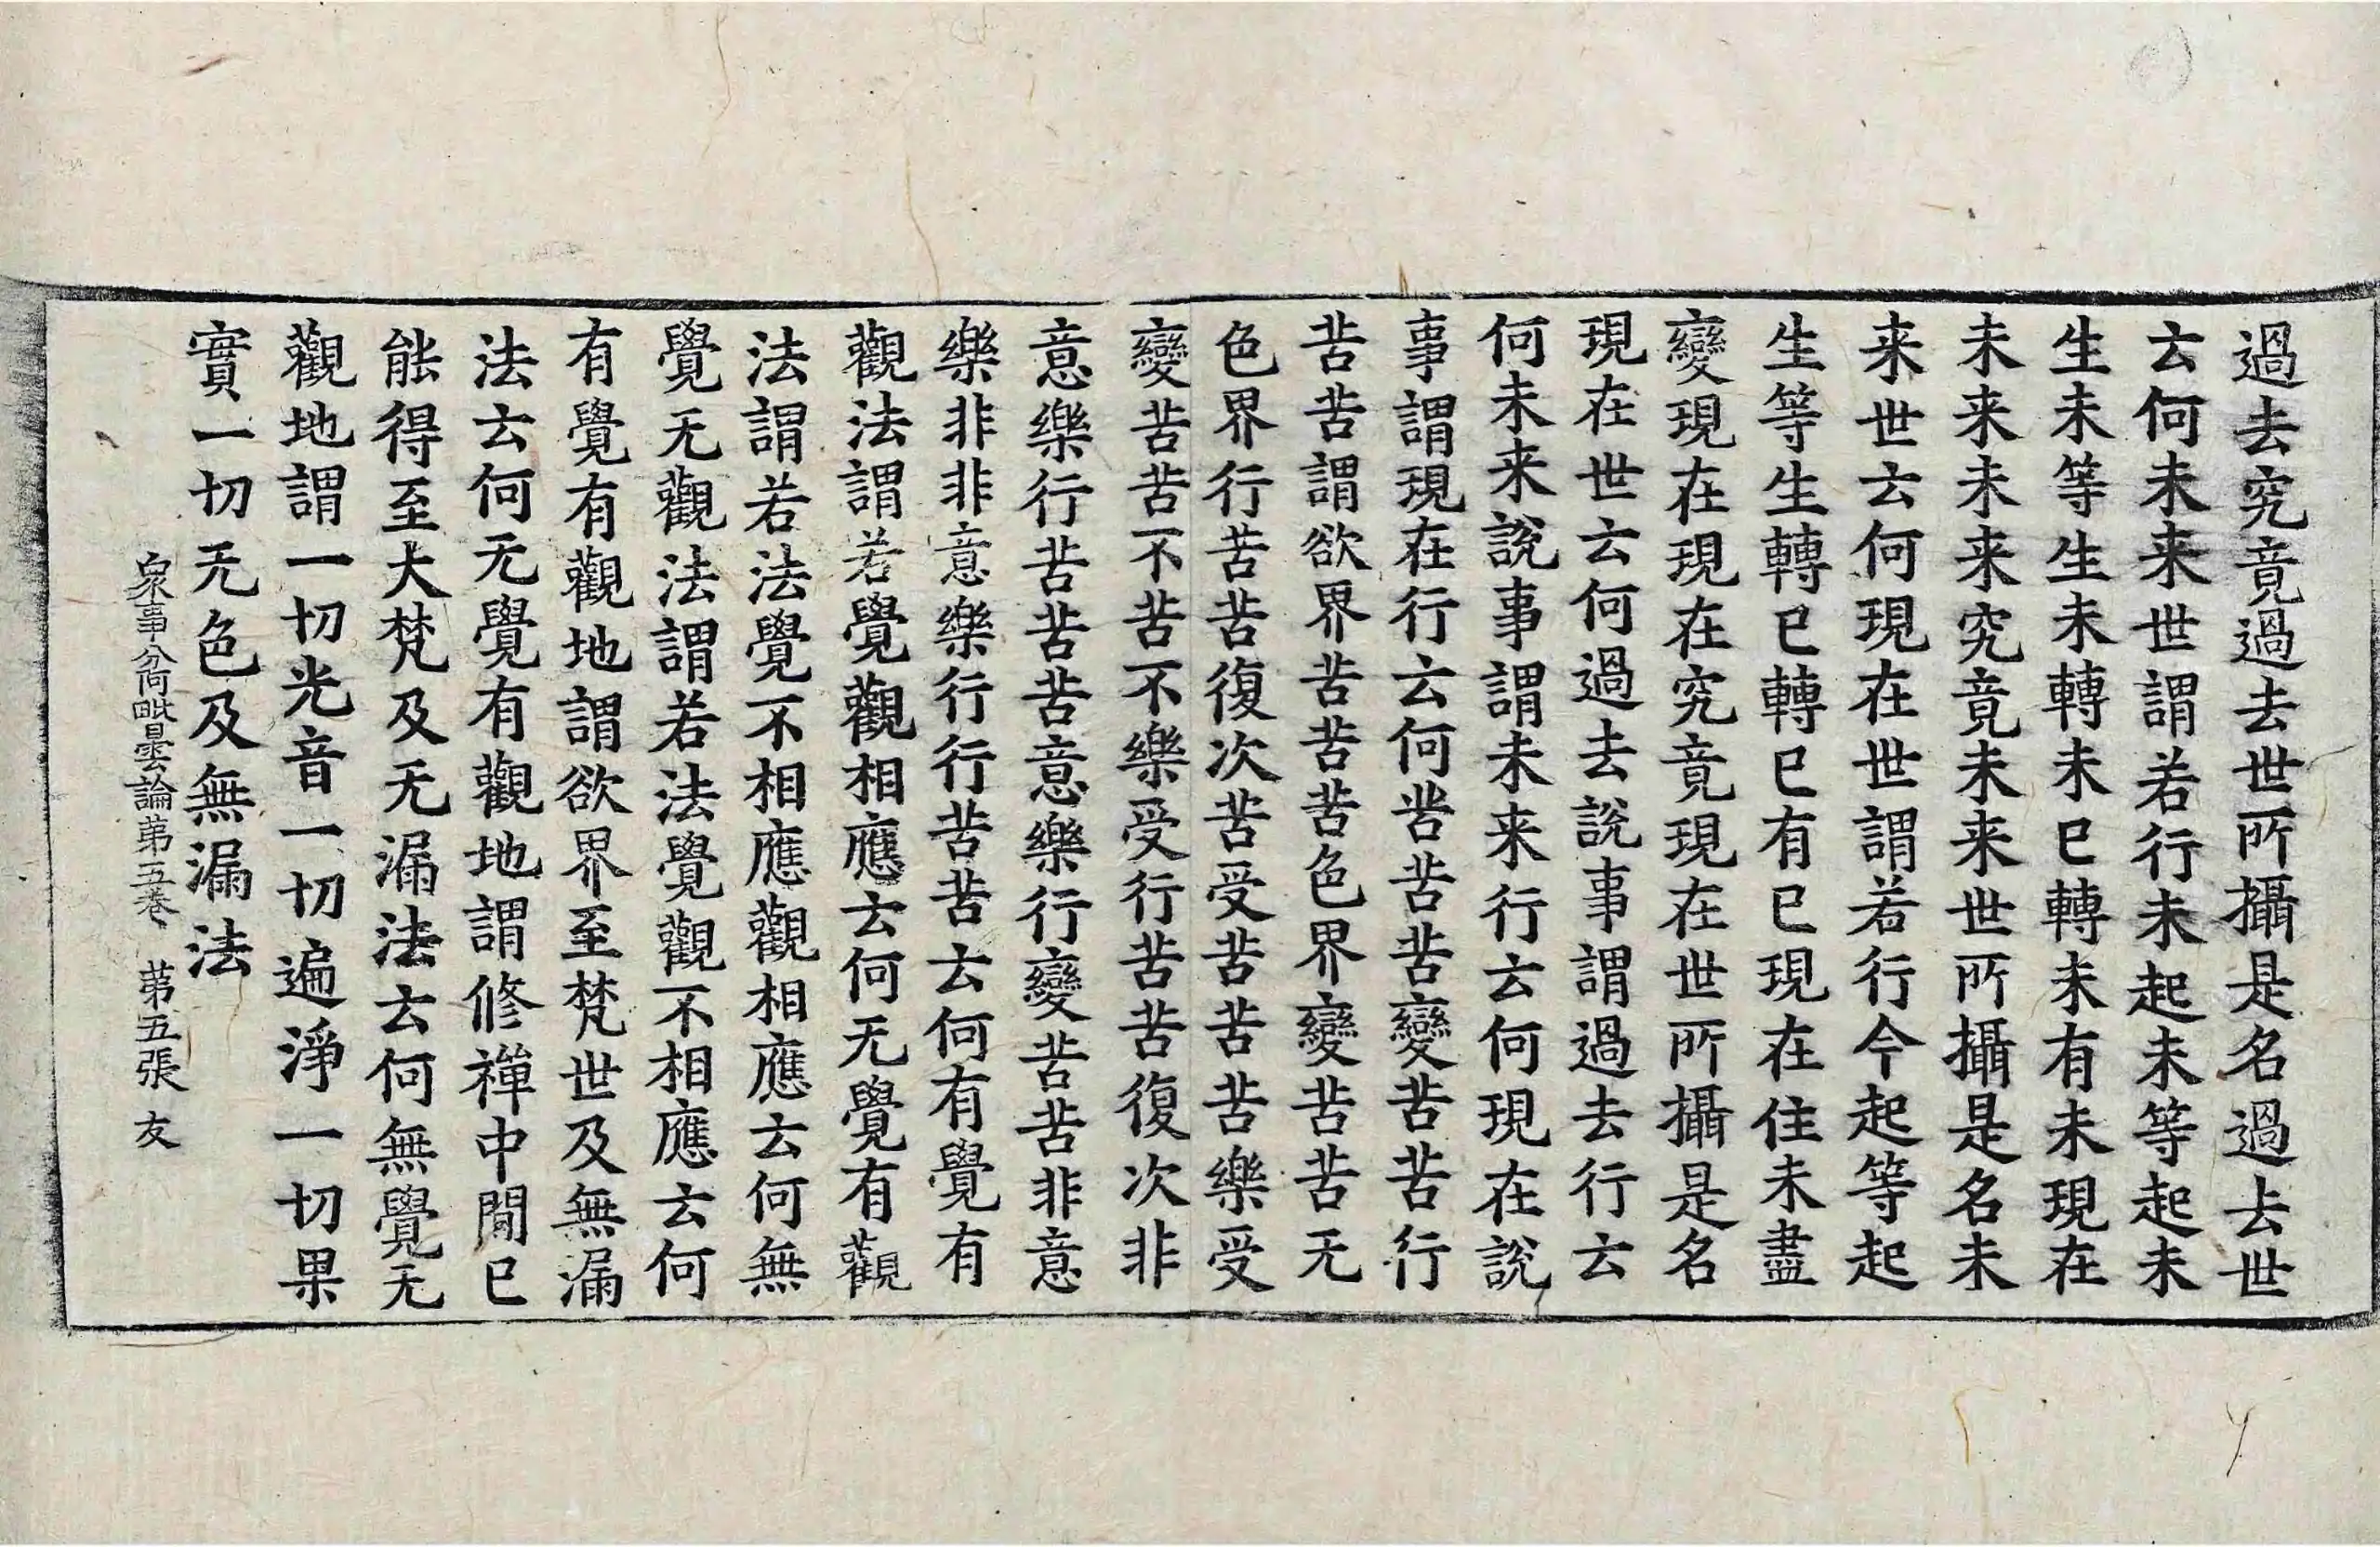 過去究竟過去世所攝是名過去世
云何未来世謂若行未起未等起未
生未等生未轉未已轉未有未現在
未来未来究竟未来世所攝是名未
来世云何現在世謂若行今起等起
生等生轉已轉已有已現在住未盡
變現在現在究竟現在世所攝是名
現在世云何過去說事謂過去行云
何未来說事謂未来行云何現在說
事謂現在行云何苦苦苦變苦苦行
苦苦謂欲界苦苦苦色界變苦苦无
色界行苦苦復次苦受苦苦苦樂受
變苦苦不苦不樂受行苦苦復次非
意樂行苦苦苦意樂行變苦苦非意
樂非非意樂行行苦苦云何有覺有
觀法謂若覺觀相應云何无覺有觀
法謂若法覺不相應觀相應云何無
覺无觀法謂若法覺觀不相應云何
有覺有觀地謂欲界至梵世及無漏
法云何无覺有觀地謂修禪中間已
能得至大梵及无漏法云何無覺无
觀地謂一切光音一切遍淨一切果
實一切无色及無漏法
衆事分阿毗曇論苐五卷 苐五張 友